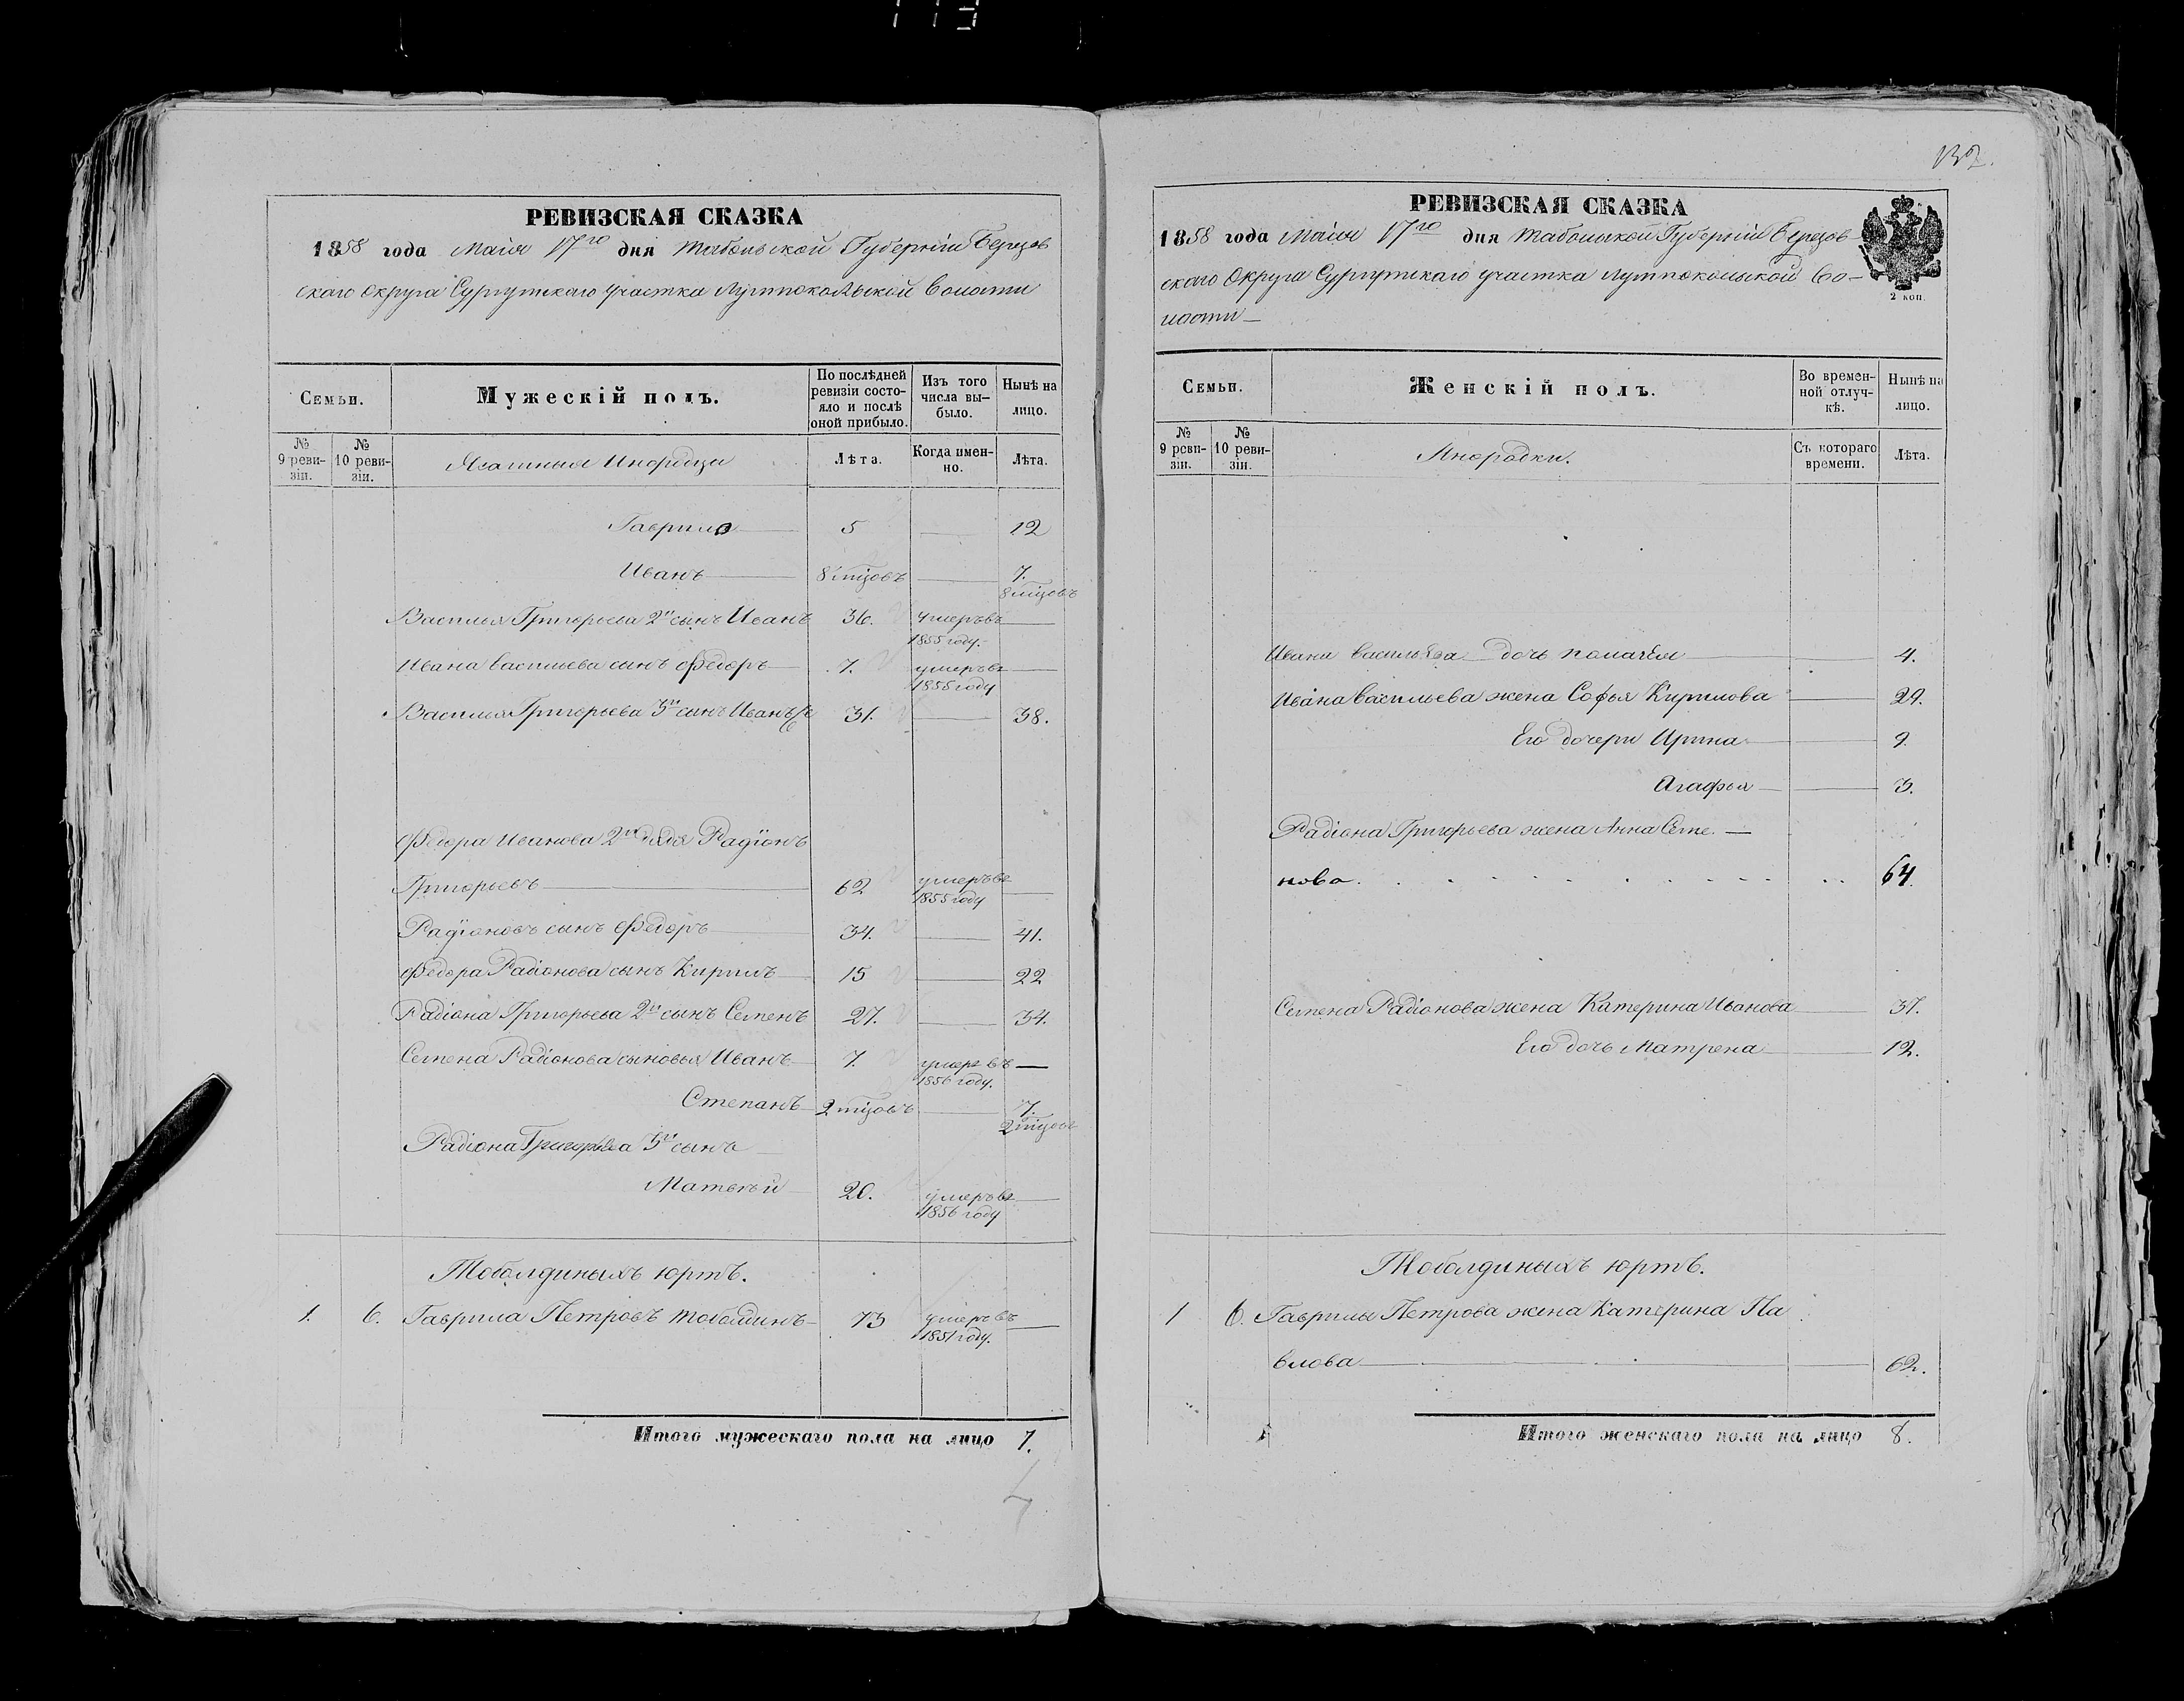 132.
РЕВИЗСКАЯ СКАЗКА
1858 года Маія 17го дня Тобольской Губерніи Березов
скаго Округа Сургутскаго участка Лумпокольской Волости
Семьи.
Мужескій полъ.
По послѣдней ревизіи состояло и послѣ оной прибыло.
Изъ того числа выбыло.
Нынѣ на лицо.
№ 9 ревизіи.
№ 10 ревизіи.
Ясашныя Инородцы
Лѣта.
Когда именно.
Лѣта.
Гаврило 5 12
Иванъ 8 мѣцовъ 7. 8 мѣцовъ
Василья Григорьева 2й сынъ Иванъ 36. умеръ въ 1855 году.
Ивана Васильева сынъ Федоръ 7. умеръ въ 1855 году
Василья Григорьева 3й сынъ Иванъ 31. 38.
Федора Иванова 2й дядя Радіонъ
Григорьевъ 62 умеръ въ 1855 году
Радіоновъ сынъ Федоръ 34. 41.
Федора Радіонова сынъ Кирилъ 15 22
Радіона Григорьева 2й сынъ Семенъ 27. 34.
Семена Радіонова сыновья Иванъ 7. умеръ въ 1856 году.
Степанъ 2 мѣцовъ 7. 2 мѣцовъ
Радіона Григорьева 3й сынъ
Матвѣй 20. умеръ въ 1856 году
Тоболдиныхъ юртъ.
1. 6. Гаврила Петровъ Тоболдинъ 73 умеръ въ 1851 году.
Итого мужескаго пола на лицо 7.
РЕВИЗСКАЯ СКАЗКА
1858 года Маія 17го дня Тобольской Губерніи Березов-
скаго Округа Сургутскаго участка Лумпокольской Во-
лости
2 коп.
Семьи.
Женскій полъ.
Во временной отлучкѣ.
Нынѣ на лицо.
№ 9 ревизіи.
№ 10 ревизіи.
Инородки.
Съ котораго времени.
Лѣта.
Ивана Васильева дочь 4.
Ивана Васильева жена Софья Кирилова 29.
Его дочери Ирина 9.
Агафья 3.
Радіона Григорьева жена Анна Семе
нова. 64.
Семена Радіонова жена Катерина Иванова 37.
Его дочь Матрена 12.
Тоболдиныхъ юртъ.
1 6. Гаврилы Петрова жена Катерина Па
влова 62.
Итого женскаго пола на лицо 8.